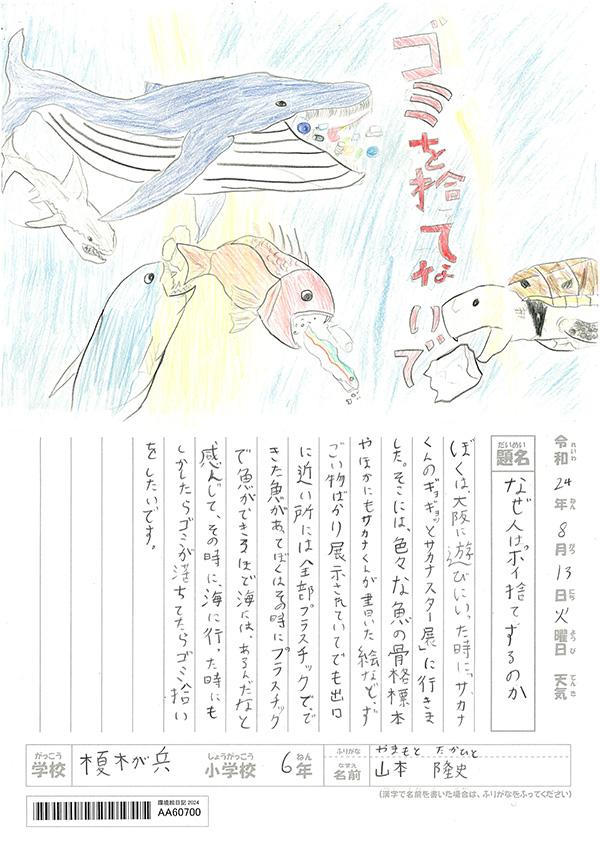 ゴミを捨てないで
令和24年8月13日火曜日 天気
れいわ ねん がつ にち ようび てんき
だいめい
題名
なぜ人はポイ捨てするのか
ぼくは、大阪に遊びにいった時に、「サカナ
くんのギョギョッとサカナスター展」に行きま
した。そこには、色々な魚の骨格標本
やほかにもサカナくんが書いた絵など、す
ごい物ばかり展示されていてでも出口
に近い所には全部プラスチックで、で
きた魚があってぼくはその時にプラスチック
で魚ができるほで海には、あるんだなと
感んじて、その時に、海に行った時にも
しかしたらゴミが落ちてたらゴミ拾い
をしたいです。
がっこう しょうがっこう ねん
学校 榎木が兵 小学校 6年
ふりがな やまもと たかひと
なまえ
名前 山本 隆史
(漢字で名前を書いた場合は、ふりがなをふってください)
環境絵日記 2024
AA60700